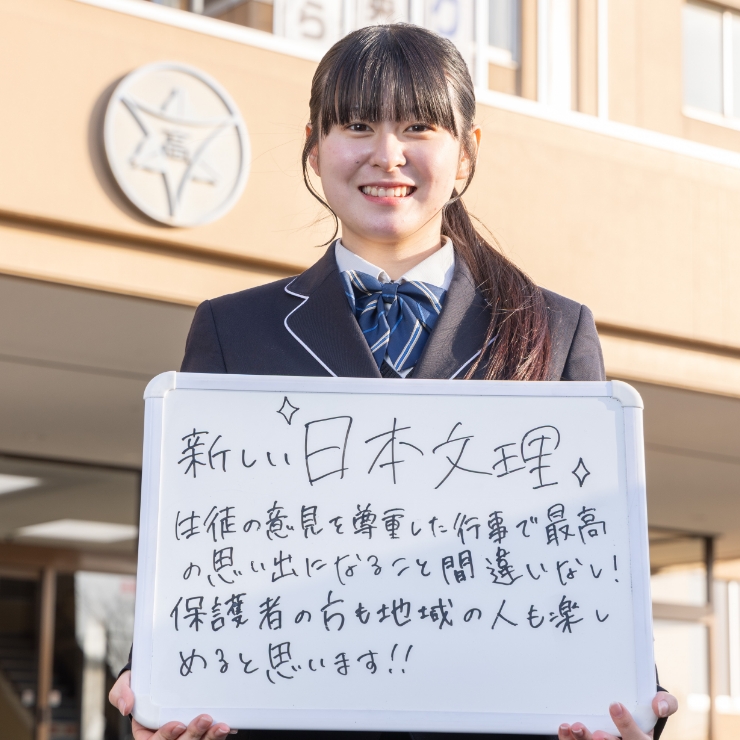 ら
新しい日本文理
生徒の意見を尊重した行事で最高
の思い出になること間違いなし!
保護者の方も地域の人も楽し
めると思います!!